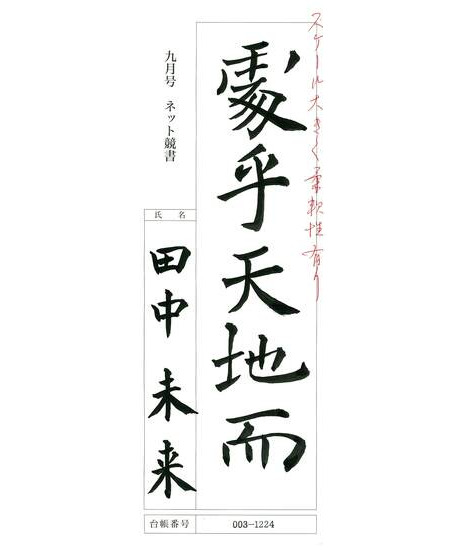 スケール大きく柔軟性有り
處乎天地而
九月号 ネット競書
氏名
田中 未来
台帳番号 003-1224